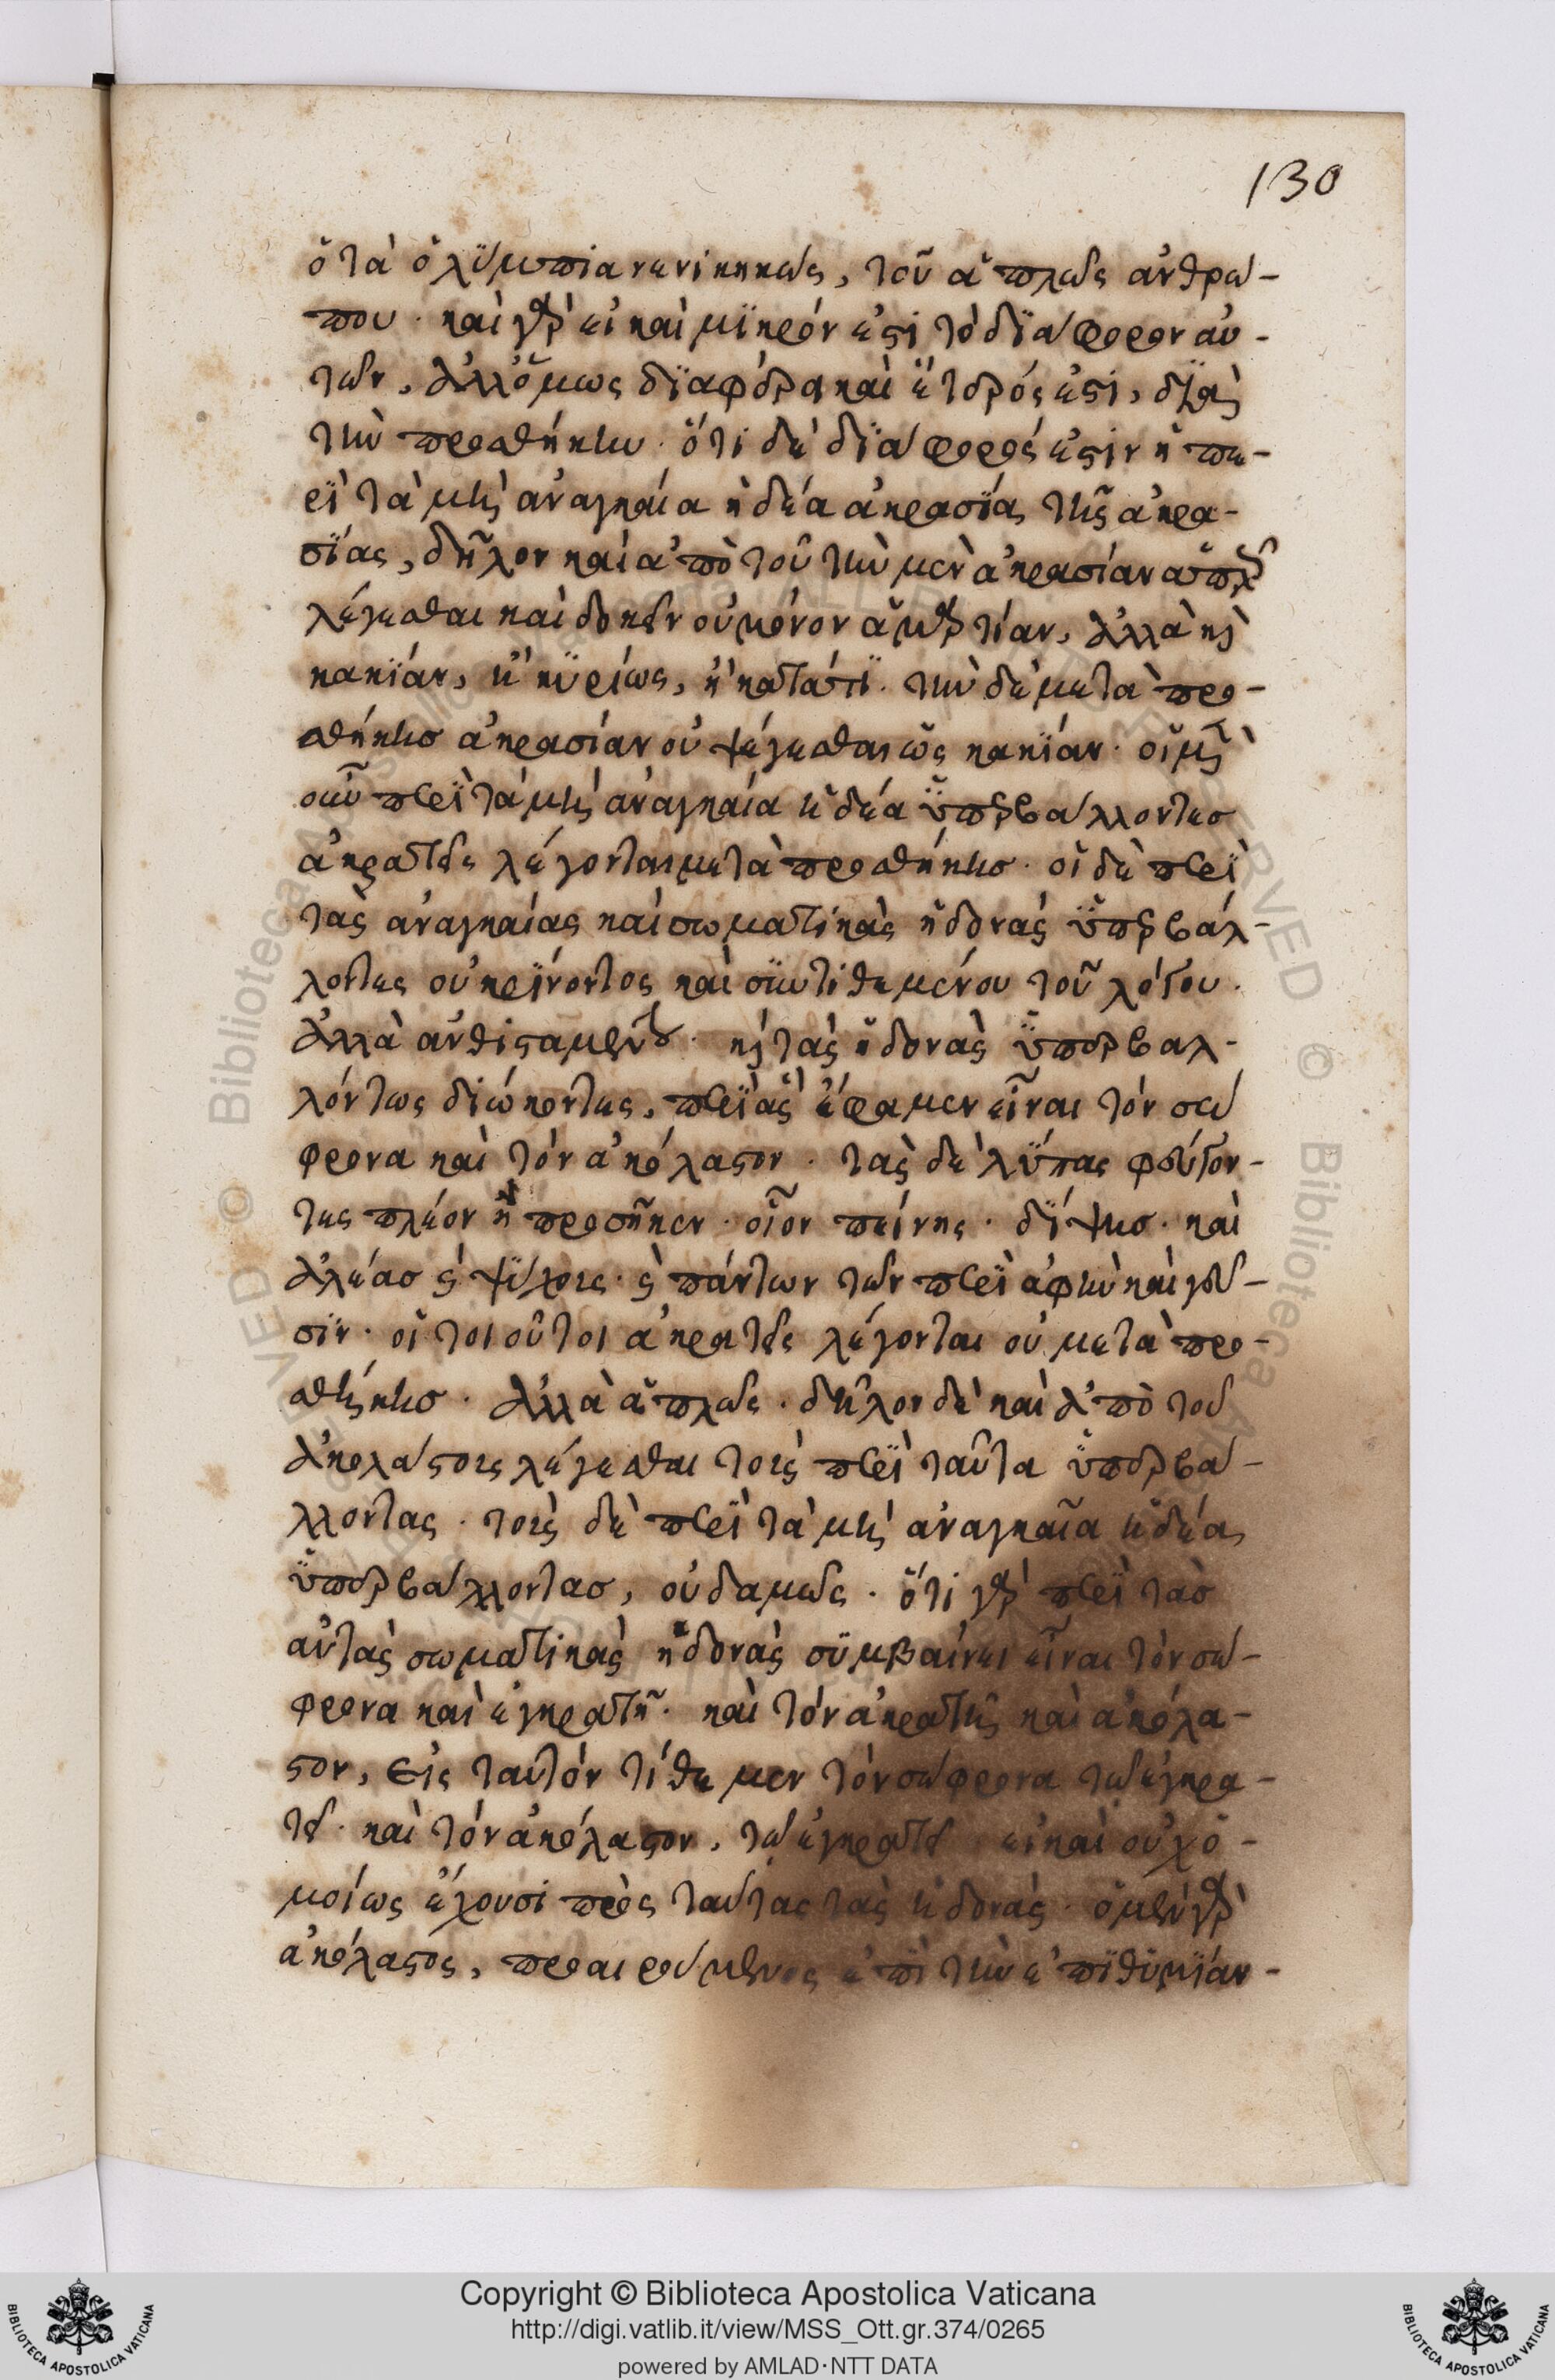 130
ὁ τὰ ὀλύμπια νενικηκώς, τοῦ ἁπλῶς ἀνθρώ-
που. καὶ γὰρ εἰ καὶ μικρόν ἐστι τὸ διάφορον αὐ-
τῶν, ἀλλ' ὅμως διαφέρει καὶ ἕτερός ἐστι, διὰ
τὴν προσθήκην. ὅτι δὲ διάφορός ἐστιν ἡ πε-
ρὶ τὰ μὴ ἀναγκαία ἡδέα ἀκρασία, τῆς ἀκρα-
σίας, δῆλον καὶ ἀπὸ τοῦ τὴν μὲν ἀκρασίαν ἁπλῶς
λέγεσθαι καὶ δοκεῖν οὐ μόνον ἁμαρτίαν, ἀλλὰ καὶ
κακίαν, ἢ κυρίως, ἢ κατά τι. τὴν δὲ μετὰ προσ-
θήκης ἀκρασίαν οὐ ψέγεσθαι ὡς κακίαν. οἱ μὲν
οὖν περὶ τὰ μὴ ἀναγκαία ἡδέα ὑπερβάλλοντες
ἀκρατεῖς λέγονται μετὰ προσθήκης. οἱ δὲ περὶ
τὰς ἀναγκαίας καὶ σωματικὰς ἡδονὰς ὑπερβάλ-
λοντες οὐ κρίνοντος καὶ συντιθεμένου τοῦ λόγου.
ἀλλὰ ἀνθισταμένου. καὶ τὰς ἡδονὰς ὑπερβαλ-
λόντως διώκοντες, περὶ ἃς ἔφαμεν εἶναι τόν σώ
φρονα καὶ τὸν ἀκόλαστον. τὰς δὲ λύπας φεύγον-
τες πλέον ἢ προσῆκεν. οἷον πείνης. δίψης. καὶ
ἀλέας καὶ ψύχους. καὶ πάντων τῶν περὶ ἁφὴν καὶ γεῦ-
σιν. οἱ τοιοῦτοι ἀκρατεῖς λέγονται οὐ μετὰ προσ-
θήκης. ἀλλὰ ἁπλῶς. δῆλον δὲ καὶ ἀπὸ τοῦ
ἀκολάστους λέγεσθαι τοὺς περὶ ταῦτα ὑπερβά-
λλοντας. τοὺς δὲ περὶ τὰ μὴ ἀναγκαῖα ἡδέα,
ὑπερβάλλοντας, οὐδαμῶς. ὅτι γὰρ περὶ τὰς
αὐτὰς σωματικὰς ἡδονὰς συμβαίνει εἶναι τὸν σώ-
φρονα καὶ ἐγκρατῆ. καὶ τὸν ἀκρατῆ καὶ ἀκόλα-
στον, εἰς ταυτόν τίθεμεν τὸν σώφρονα τῷ ἐγκρα-
τεῖ. καὶ τὸν ἀκόλαστον, τῷ ἐγκρατεῖ εἰ καὶ οὐχ ὁ-
μοίως ἔχουσι πρὸς ταύτας τὰς ἡδονὰς. ὁ μὲν γὰρ
ἀκόλαστος, προαιρούμενος ἐπὶ τὴν ἐπιθυμίαν-
Copyright © Biblioteca Apostolica Vaticana
http://digi.vatlib.it/view/MSS_Ott.gr.374/0265
powered by AMLAD·NTT DATA